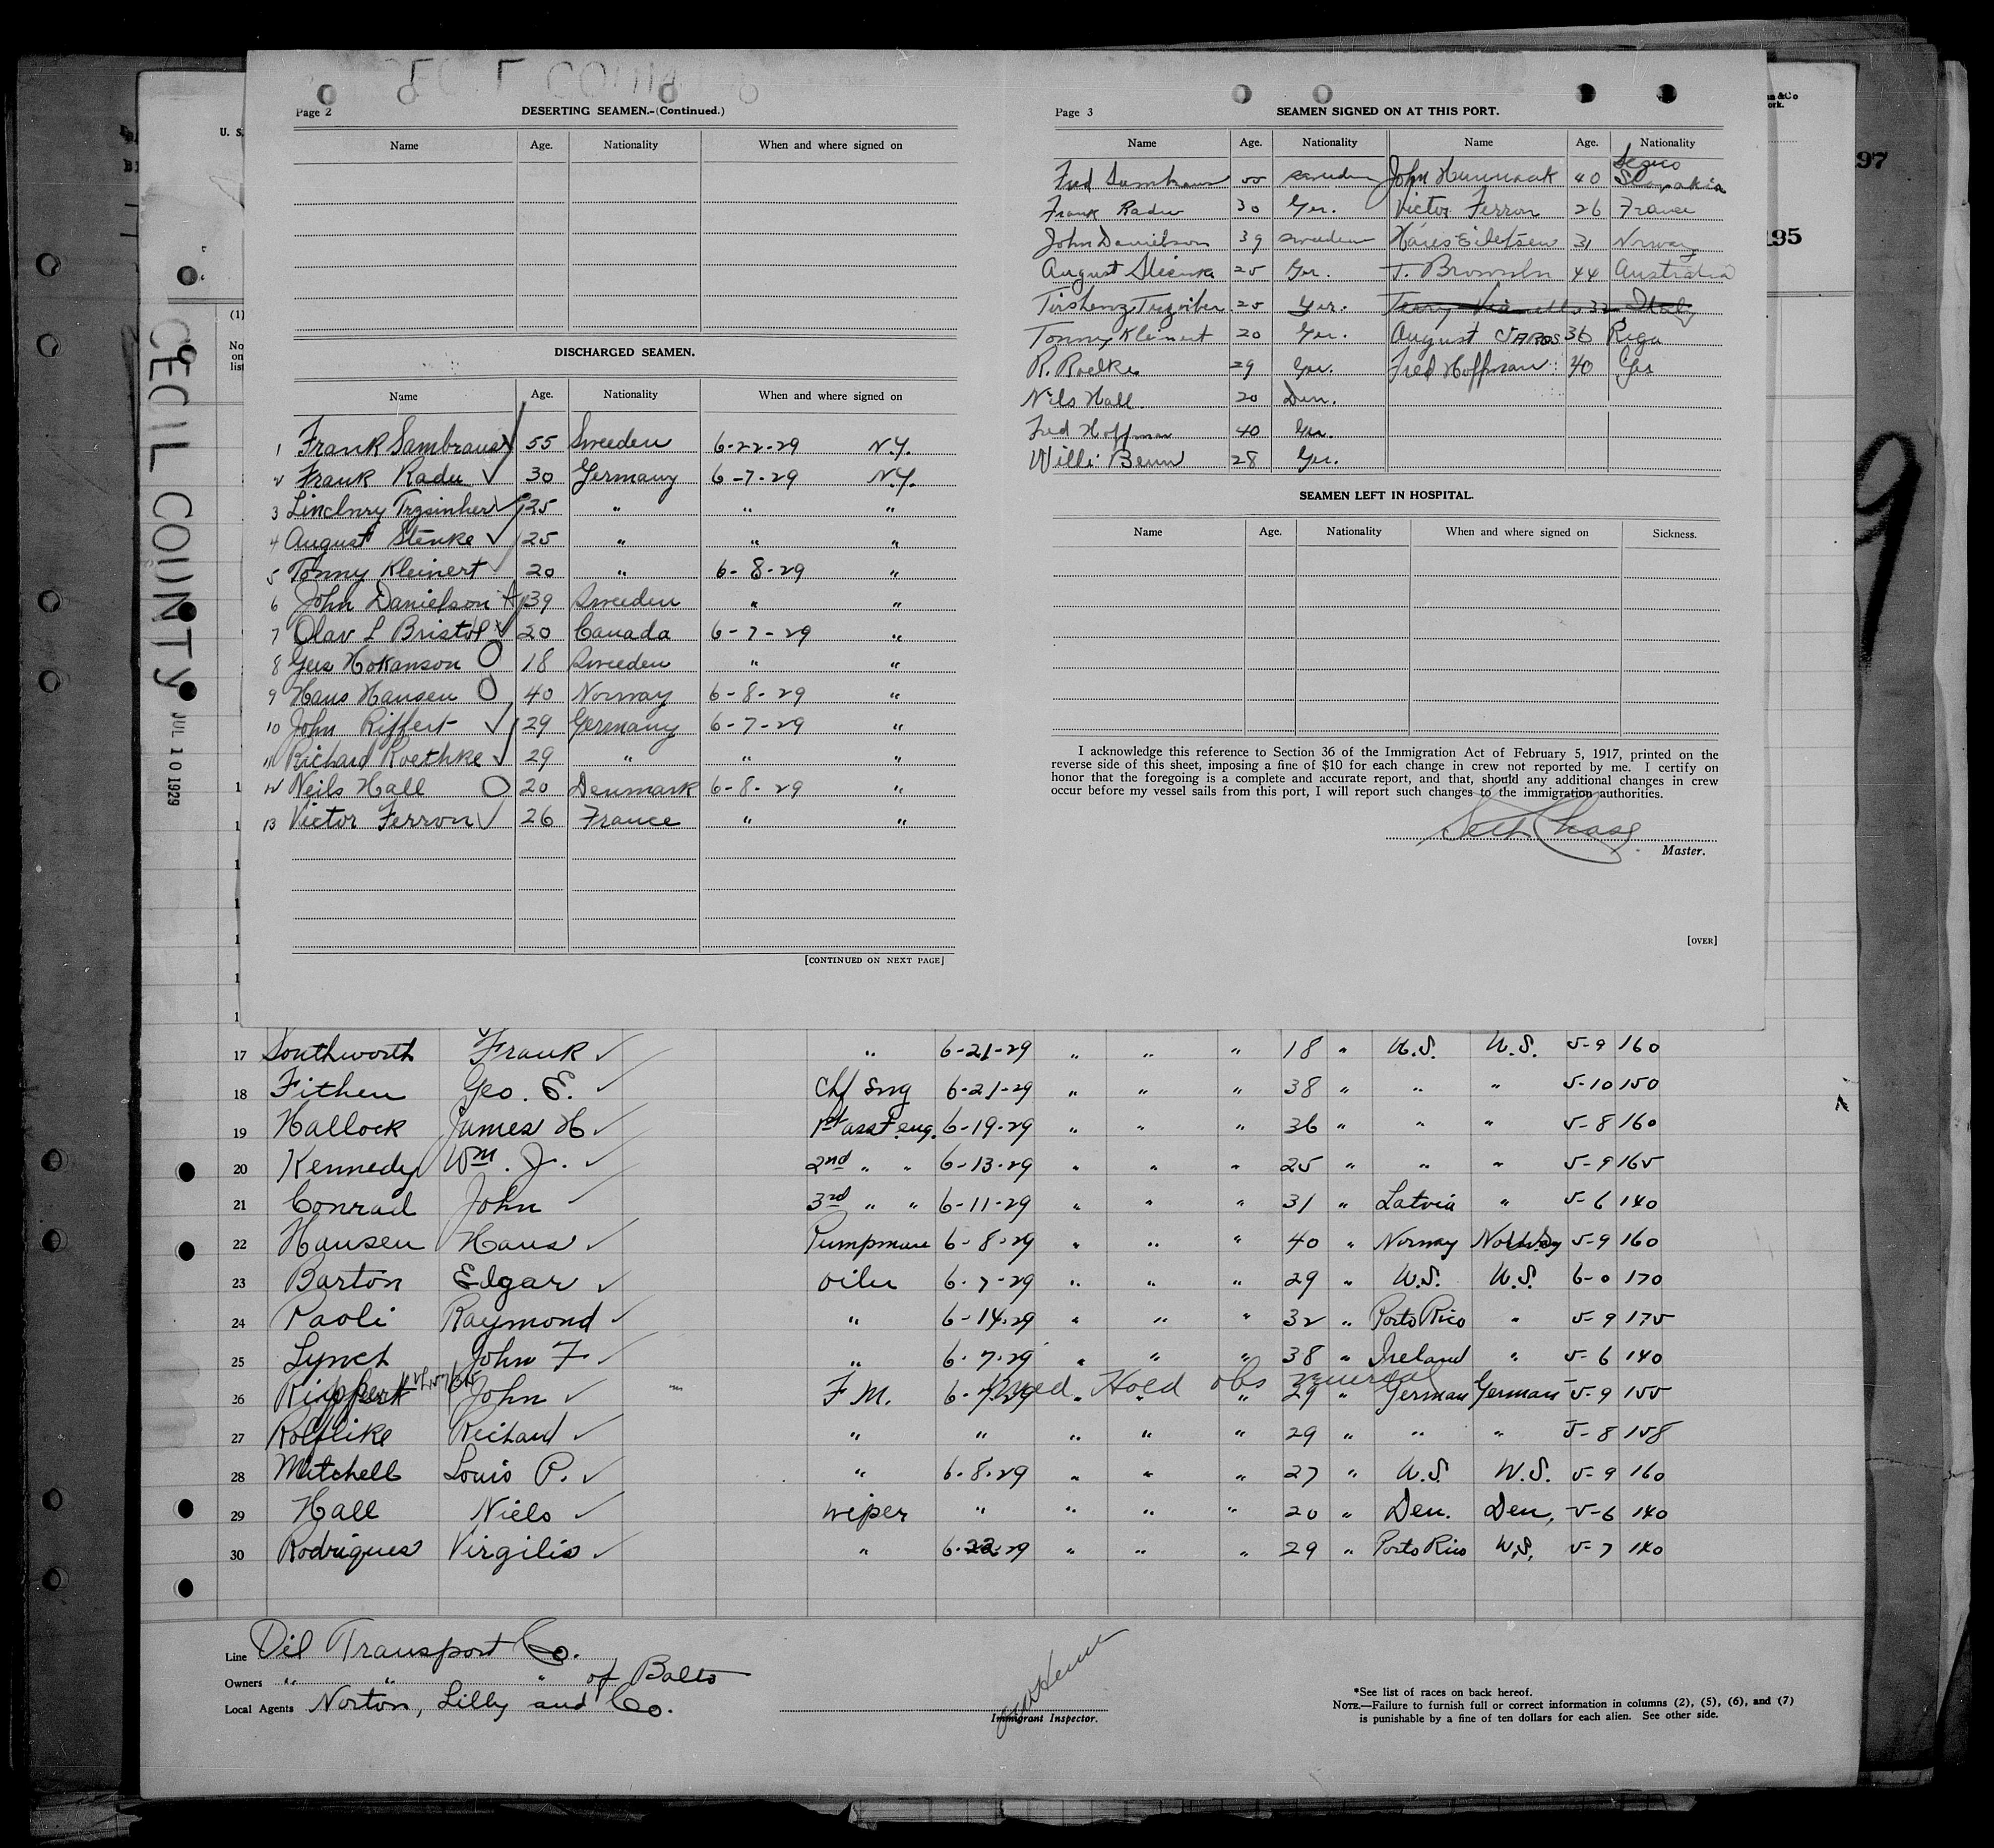 Page 2
DESERTING SEAMEN.-(Continued.)
Name Age. Nationality When and where signed on
DISCHARGED SEAMEN.
Name Age. Nationality When and where signed on
1 Frank Sambraus 55 Sweeden 6-22-29 N.Y.
2 Frank Radu 30 Germany 6-7-29 N.Y.
3 25 " " "
4 August Stenke 25 " " "
5 Tonny Kleinert 20 " 6-8-29 "
6 John Danielson 39 Sweeden " "
7 Olav L Bristol 20 Canada 6-7-29 "
8 Gus Hokanson 18 Sweeden " "
9 Hans Hansen 40 Norway 6-8-29 "
10 John Riffert 29 Germany 6-7-29 "
11 Richard Roethke 29 " " "
12 Neils Hall 20 Denmark 6-8-29 "
13 Victor Ferron 26 France " "
[CONTINUED ON NEXT PAGE]
Page 3
SEAMEN SIGNED ON AT THIS PORT.
Name Age. Nationality Name Age. Nationality
Fred 55 Sweeden John 40 Slovakia
Frank Radu 30 Ger. Victor Ferron 26 France
John Danielson 39 Sweeden 31 Norway
August 25 Ger. T. 44 Australia
25 Ger. 32 Italy
Tonny Kleinert 20 Ger. August JAROS 36 Riga
R. Roelke 29 Ger. Fred Hoffman 40 Ger
Nils Hall 20 Den.
Fred Hoffman 40 Ger.
Willi Benn 28 Ger.
SEAMEN LEFT IN HOSPITAL.
Name Age. Nationality When and where signed on Sickness.
I acknowledge this reference to Section 36 of the Immigration Act of February 5, 1917, printed on the
reverse side of this sheet, imposing a fine of $10 for each change in crew not reported by me. I certify on
honor that the foregoing is a complete and accurate report, and that, should any additional changes in crew
occur before my vessel sails from this port, I will report such changes to the immigration authorities.
Seth Chase
Master.
[OVER]
CECIL COUNTY
JUL 10 1929
U. S.
(1)
No
on
list
97
195
9
17 Southworth Frank " 6-21-29 " " " 18 " U.S. U.S. 5-9 160
18 Fithen Geo. E. Chf Eng 6-21-29 " " " 38 " " " 5-10 150
19 Hallock James H 1st asst. eng. 6-19-29 " " " 36 " " " 5-8 160
20 Kennedy Wm. J. 2nd " " 6-13-29 " " " 25 " " " 5-9 165
21 Conrad John 3rd " " 6-11-29 " " " 31 " Latvia " 5-6 140
22 Hansen Hans Pumpman 6-8-29 " " " 40 " Norway Norway 5-9 160
23 Barton Edgar oiler 6-7-29 " " " 29 " U.S. U.S. 6-0 170
24 Paoli Raymond " 6-14-29 " " " 32 " Porto Rico " 5-9 175
25 Lynch John F " 6-7-29 " " " 38 " Ireland " 5-6 140
26 John F M. 6-7-29 Hold obs " 29 " German German 5-9 155
27 Richard " " " " " 29 " " " 5-8 158
28 Mitchell Louis P. " 6-8-29 " " " 27 " U.S. U.S. 5-9 160
29 Hall Niels wiper " " " " 20 " Den. Den. 5-6 140
30 Rodrigues Virgilio " 6-22-29 " " " 29 " Porto Rico U.S. 5-7 140
Line Oil Transport Co.
Owners " " " of Balto
Local Agents Norton, Lilly and Co.
Immigrant Inspector.
*See list of races on back hereof.
NOTE.—Failure to furnish full or correct information in columns (2), (5), (6), and (7)
is punishable by a fine of ten dollars for each alien. See other side.